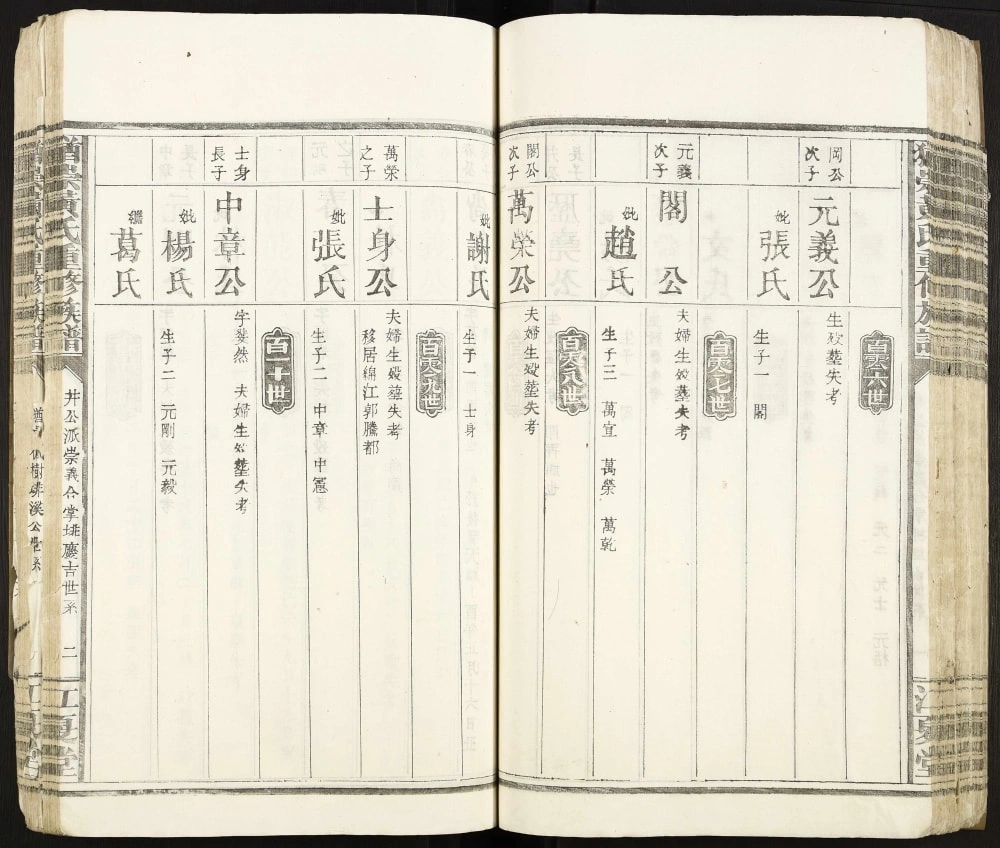 百零六世
岡公次子
元義公
生歿塟失考
妣張氏
生子一 閣
百零七世
元義次子
閣公
夫婦生歿塟失考
妣趙氏
生子三 萬宜 萬榮 萬乾
百零八世
閣公次子
萬榮公
夫婦生歿塟失考
妣謝氏
生子一 士身
百零九世
萬榮之子
士身公
夫婦生歿塟失考
移居綿江郭騰都
妣張氏
生子二 中章 中憲
百一十世
士身長子
中章公
字斐然 夫婦生歿塟失考
妣楊氏
生子二 元剛 元毅
繼葛氏
猶崇黃氏重修族譜
井公派崇義合掌垇慶吉世系
二
江夏堂